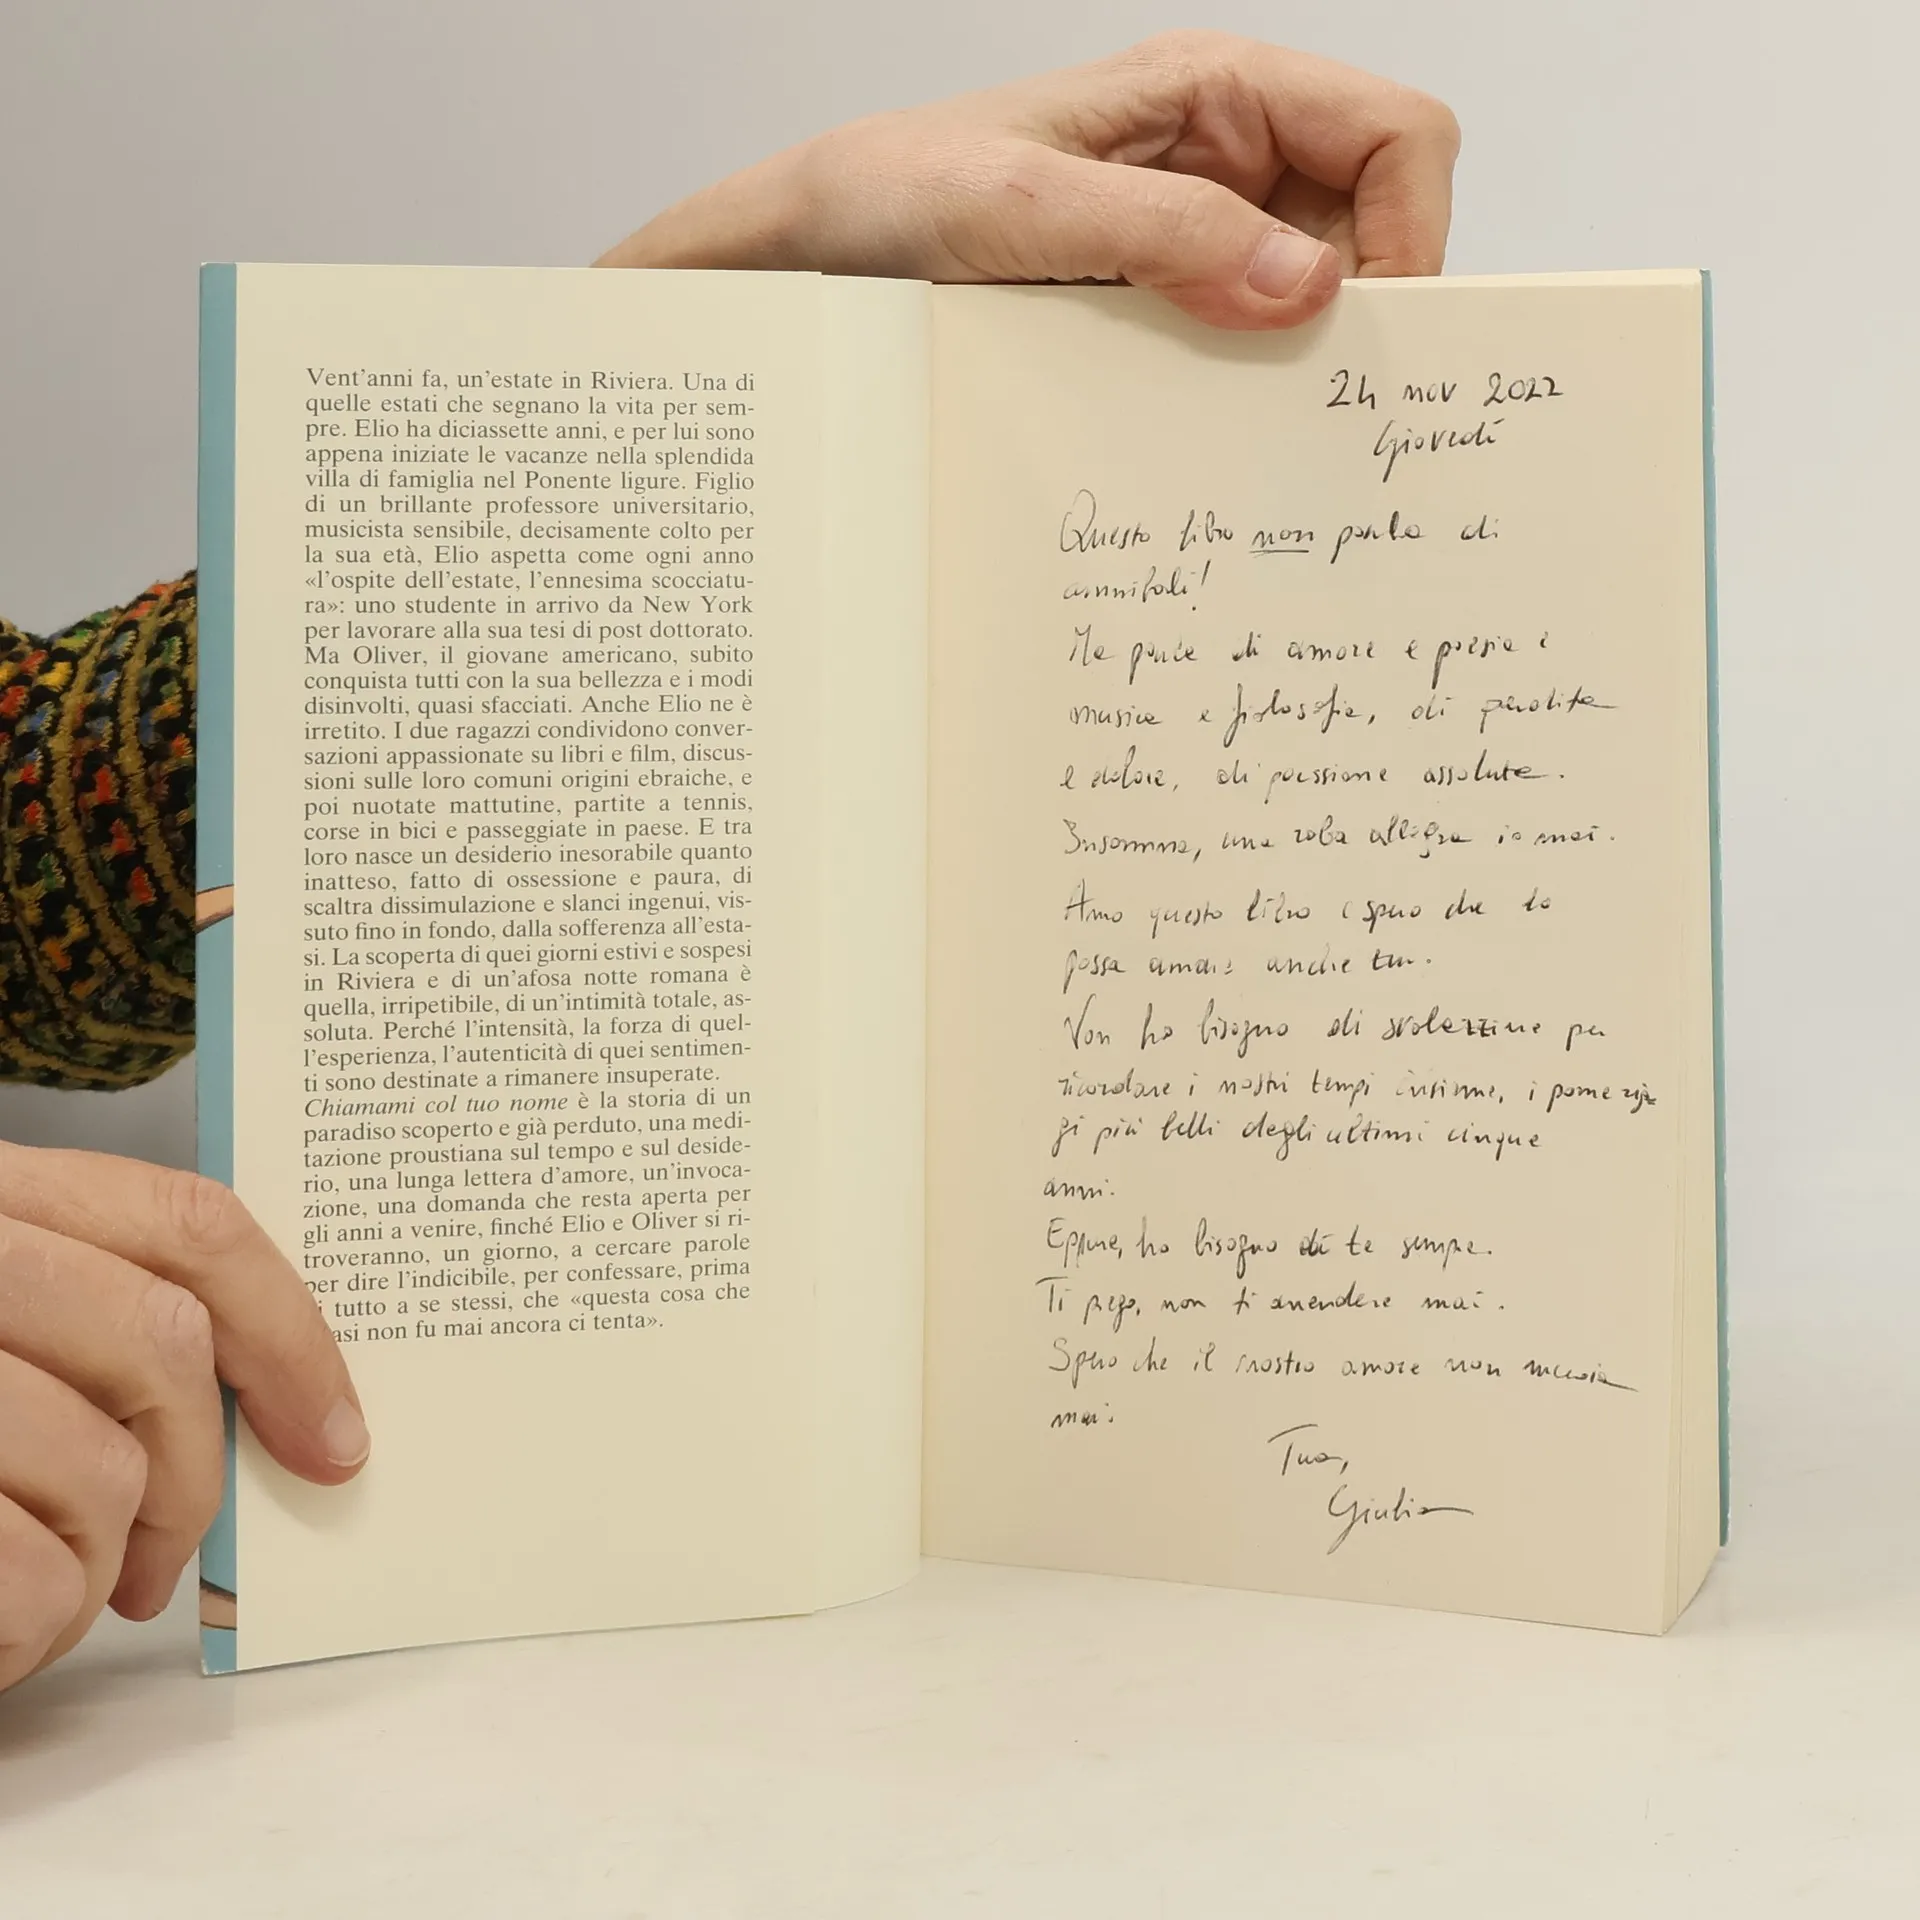 Vent'anni fa, un'estate in Riviera. Una di
quelle estati che segnano la vita per sem-
pre. Elio ha diciassette anni, e per lui sono
appena iniziate le vacanze nella splendida
villa di famiglia nel Ponente ligure. Figlio
di un brillante professore universitario,
musicista sensibile, decisamente colto per
la sua età, Elio aspetta come ogni anno
«l'ospite dell'estate, l'ennesima scocciatu-
ra»: uno studente in arrivo da New York
per lavorare alla sua tesi di post dottorato.
Ma Oliver, il giovane americano, subito
conquista tutti con la sua bellezza e i modi
disinvolti, quasi sfacciati. Anche Elio ne è
irretito. I due ragazzi condividono conver-
sazioni appassionate su libri e film, discus-
sioni sulle loro comuni origini ebraiche, e
poi nuotate mattutine, partite a tennis,
corse in bici e passeggiate in paese. E tra
loro nasce un desiderio inesorabile quanto
inatteso, fatto di ossessione e paura, di
scaltra dissimulazione e slanci ingenui, vis-
suto fino in fondo, dalla sofferenza all'esta-
si. La scoperta di quei giorni estivi e sospesi
in Riviera e di un'afosa notte romana è
quella, irripetibile, di un'intimità totale, as-
soluta. Perché l'intensità, la forza di quel-
l'esperienza, l'autenticità di quei sentimen-
ti sono destinate a rimanere insuperate.
Chiamami col tuo nome è la storia di un
paradiso scoperto e già perduto, una medi-
tazione proustiana sul tempo e sul deside-
rio, una lunga lettera d'amore, un'invoca-
zione, una domanda che resta aperta per
gli anni a venire, finché Elio e Oliver si ri-
troveranno, un giorno, a cercare parole
per dire l'indicibile, per confessare, prima
i tutto a se stessi, che «questa cosa che
asi non fu mai ancora ci tenta».
24 nov 2022
Giovedì
Questo libro non parla di
cannibali!
Ma parla di amore e poesia e
musica e filosofia, di perdita
e dolore, di passione assoluta.
Insomma, una roba allegra io mai.
Amo questo libro e spero che lo
possa amare anche tu.
Non ho bisogno di per
ricordare i nostri tempi insieme, i pomerig-
gi più belli degli ultimi cinque
anni.
Eppure, ho bisogno di te sempre.
Ti prego, non ti arrendere mai.
Spero che il nostro amore non muoia
mai.
Tua,
Giulia